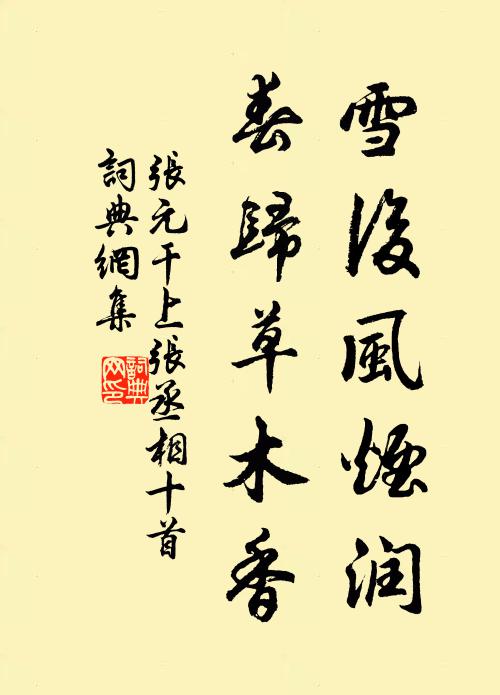 雪後風煙潤
春歸草木香
張元干上張丞相十首
詞典網集
詞典網印